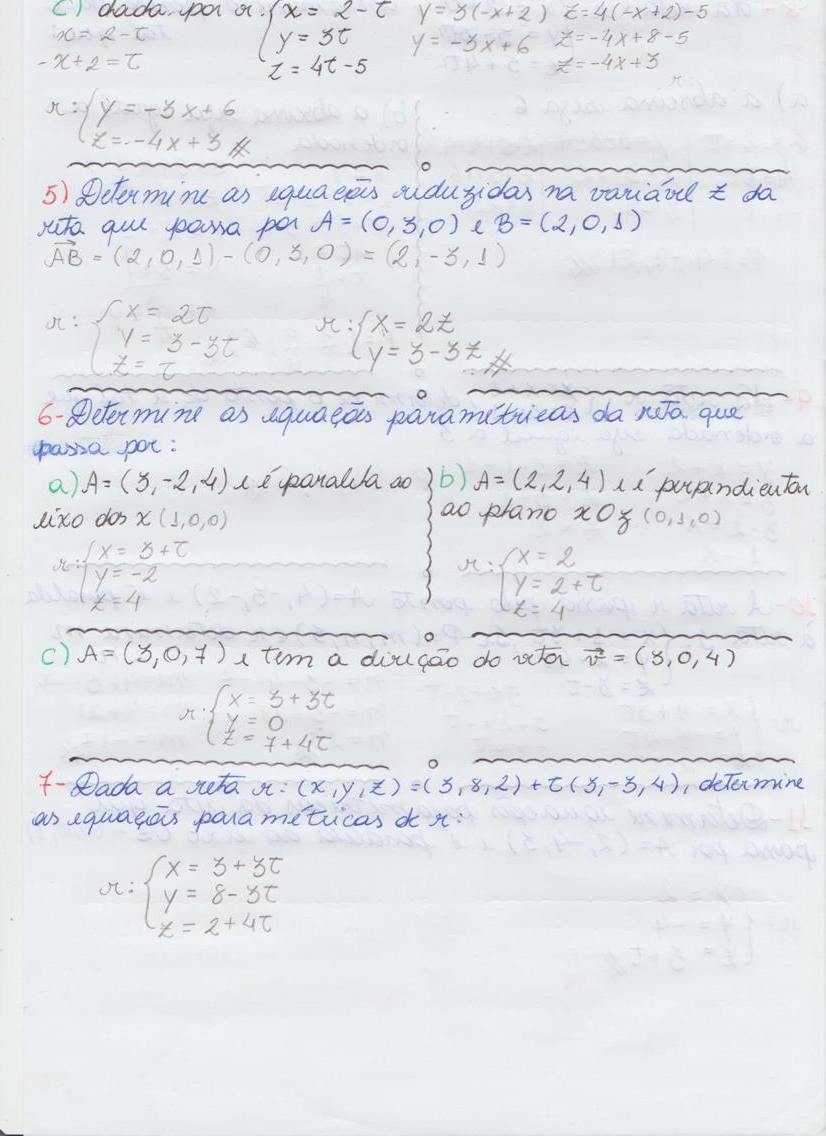 c) dada por r: {x = 2 - t
y = 3t
z = 4t - 5
x = 2 - t
-x + 2 = t
y = 3(-x+2)
y = -3x + 6
z = 4(-x+2) - 5
z = -4x + 8 - 5
z = -4x + 3
r: {y = -3x + 6
z = -4x + 3 //
5) Determine as equações reduzidas na variável z da
reta que passa por A = (0, 3, 0) e B = (2, 0, 1)
AB = (2, 0, 1) - (0, 3, 0) = (2, -3, 1)
r: {x = 2t
y = 3 - 3t
z = t
r: {x = 2z
y = 3 - 3z //
6- Determine as equações paramétricas da reta que
passa por:
a) A = (3, -2, 4) e é paralela ao
eixo dos x (1,0,0)
r: {x = 3 + t
y = -2
z = 4
b) A = (2, 2, 4) e é perpendicular
ao plano xOz (0,1,0)
r: {x = 2
y = 2 + t
z = 4
c) A = (3, 0, 7) e tem a direção do vetor v = (3, 0, 4)
r: {x = 3 + 3t
y = 0
z = 7 + 4t
7- Dada a reta r: (x, y, z) = (3, 8, 2) + t (3, -3, 4), determine
as equações paramétricas de r:
r: {x = 3 + 3t
y = 8 - 3t
z = 2 + 4t